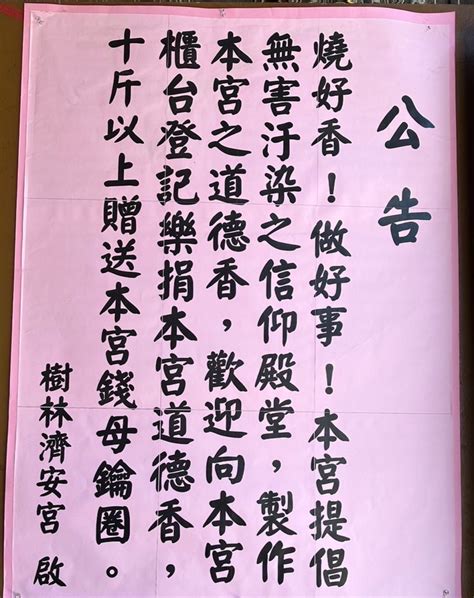 公告
燒好香！做好事！本宮提倡
無害汙染之信仰殿堂，製作
本宮之道德香，歡迎向本宮
櫃台登記樂捐本宮道德香，
十斤以上贈送本宮錢母鑰圈。
樹林濟安宮 啟